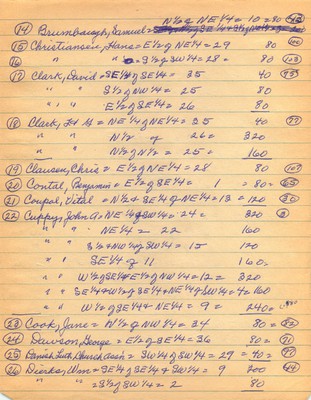 N½ of NE¼ = 10 = 80
14 Brumbaugh, Samuel =
15 Christiansen, Hans = E½ of NE¼ = 29 80
16 " " = S½ of SW¼ = 28 = 80 103
17 Clark, David = SE¼ of SE¼ = 35 40
" " S½ of NW¼ = 25 80
" " E½ of SE¼ = 26 80
18 Clark, = NE¼ of NE¼ = 35 40
" " N½ of 26 = 320
" " N½ of N½ = 25 = 160
19 Clausen, Chris = E½ of NE¼ = 28 80 107
20 Contal, Benjamin = E½ of SE¼ = 1 = 80 =
21 Coupal, Vital = N½ & SE¼ of NE¼ = 13 = 120
22 Cuppy, John A = NE¼ & SW¼ = 24 = 320
" " " NE¼ = 22 160
" " S½ & NW¼ of SW¼ = 15 120
" " SE¼ of 11 160
" " W½ of SE¼ & E½ of NW¼ = 12 = 320
" " SE¼ & W½ of SE¼ & NE¼ of SW¼ = 4 = 160
" " W½ of SE¼ & NE¼ = 9 = 240
23 Cook, Jane = W½ of NW¼ = 34 80 =
24 Dawson, George = E½ of SE¼ = 36 80 = 91
25 Danish Luth. Church assn = SW¼ of SW¼ = 29 = 40 =
26 Dierks, Wm = SE¼ of SE¼ & SW¼ = 9 200
" " = S½ of SW¼ = 2 80